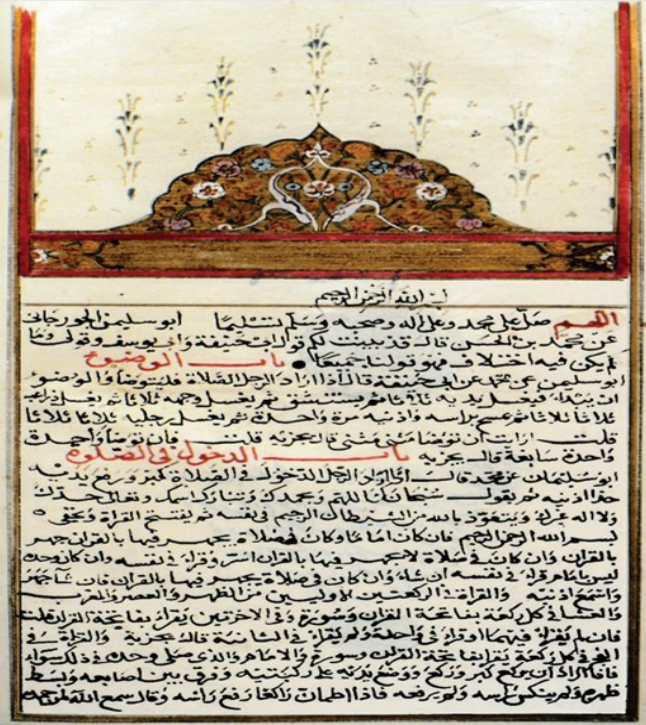 بسم الله الرحمن الرحيم
اللهم صل على محمد وعلى اله وصحبه وسلم تسليما ابو سليمن الجورجاني
عن محمد بن الحسن قال قد بينت لكم قول ابي حنيفة وابي يوسف وقولي وما
لم يكن فيه اختلاف فهو قولنا جميعا باب الوضوء
ابو سليمن عن محمد عن ابي حنيفة قال اذا اراد الرجل الصلاة فليتوضا والوضوء
ان يبدا فيغسل يديه ثلاثا ثم يستنشق ثم يغسل وجهه ثلاثا ثم يغسل ذراعيه
ثلاثا ثلاثا ثم يمسح براسه واذنيه مرة واحدة ثم يغسل رجليه ثلاثا ثلاثا
قلت ارايت ان توضا مثنى مثنى قال يجزيه قلت فان توضا واحدة
واحدة سابغة قال يجزيه باب الدخول في الصلوة
ابو سليمان عن محمد قال اذا اراد الرجل الدخول في الصلاة كبر ورفع يديه
حذو اذنيه ثم يقول سبحانك اللهم وبحمدك وتبارك اسمك وتعالى جدك
ولا اله غيرك ويتعوذ بالله من الشيطان الرجيم في نفسه ثم يفتتح القراة ويخفي
بسم الله الرحمن الرحيم فان كان اماما وكان في صلاة يجهر فيها بالقران جهر
بالقران وان كان في صلاة لا يجهر فيها بالقران اسر وقراء في نفسه وان كان وحده
ليس بامام قراء في نفسه ان شاء وان كان في صلاة يجهر فيها بالقران فان شا جهر
واسمع اذنيه والقراة في الركعتين الاوليين من الظهر والعصر والمغرب
والعشا في كل ركعة بفاتحة القران وسورة وفي الاخرتين يقراء بفاتحة القران قلت
فان لم يقراء فيهما او قراء في واحدة ولم يقراء في الثانية قال يجزيه والقراة في
الفجر في كل ركعة يقرا بفاتحة القران وسورة والامام والذي صلى وحده في ذلك سواء
فاذا اراد ان يركع كبر وركع ووضع يديه على ركبتيه وفرق بين اصابعه وبسط
ظهره ولم ينكس راسه ولم يرفعه فاذا اطمان راكعا رفع راسه وقال سمع الله لمن حمده